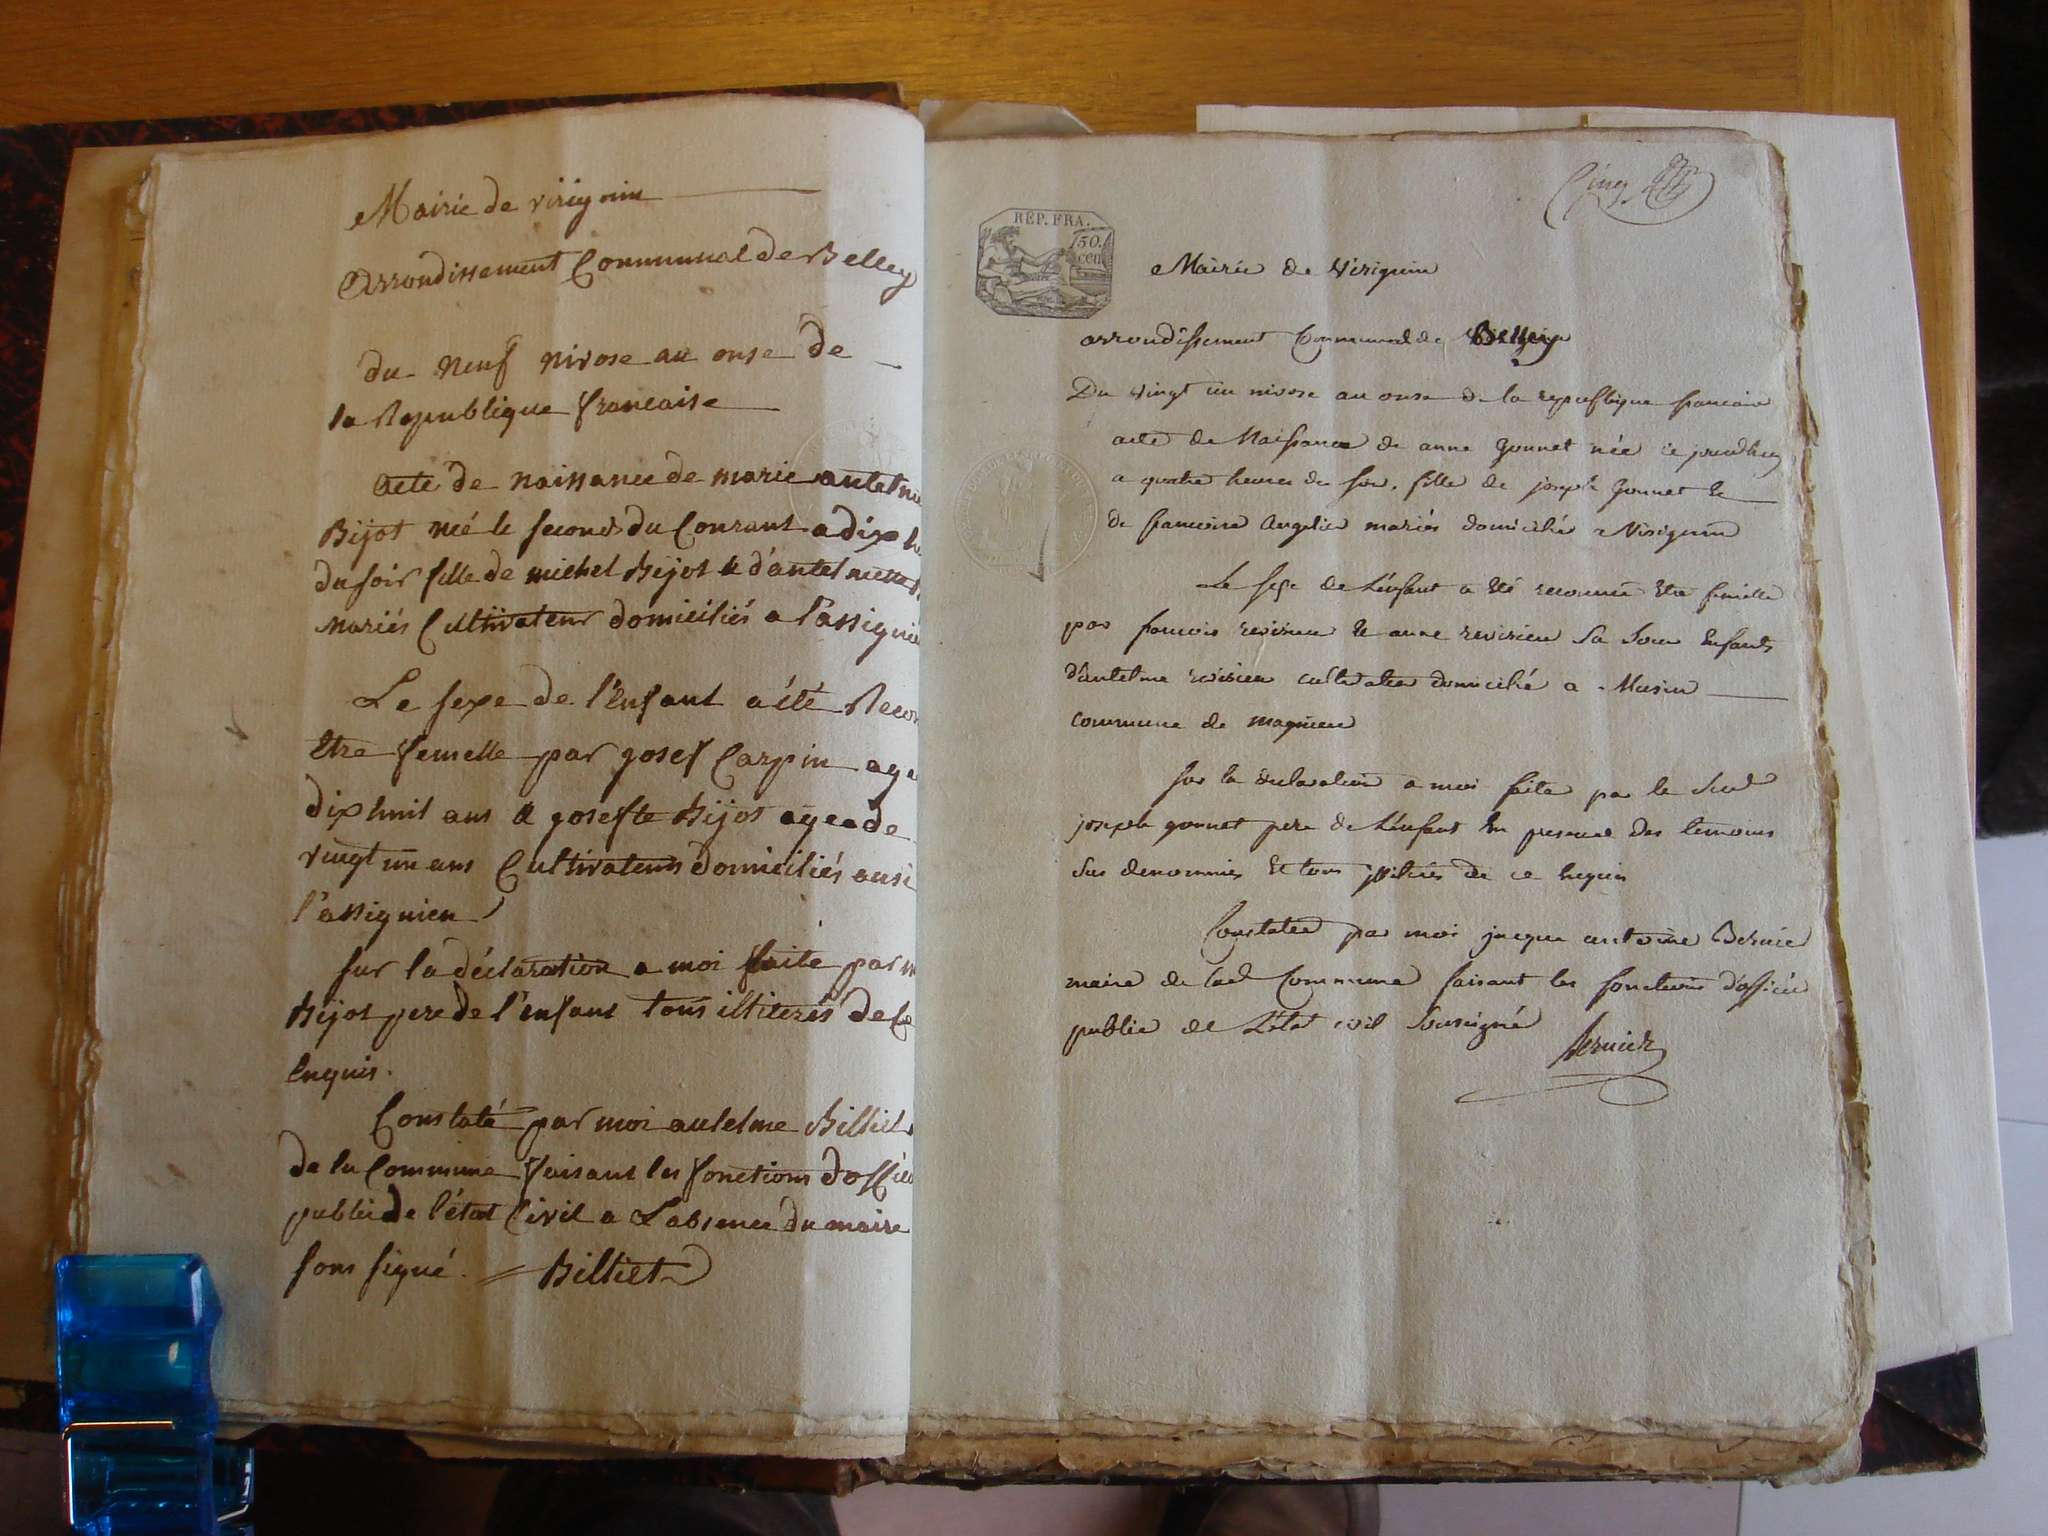 Mairie de virignin
Arrondissement Communal de Belley
du neuf nivose an onse de
la Republique francaise
Acte de naissance de marie antelme
Bijot née le second du Courant a dix he
du soir fille de michel Bijot & d'antelmette
Mariés Cultivateur domiciliés a l'assignie
Le sexe de l'Enfant a été Recon
Etre femelle par Josef Carpin age
dix huit ans & josefte Bijot agée de
vingt un ans Cultivateurs domiciliés ausi
l'assignieu
sur la déclaration a moi faite par m
Bijot pere de l'enfant tous illiterés de ce
Enquis.
Constaté par moi antelme Billiet
de la Commune faisant les fonctions d'offici
public de l'état Civil a L'absence du maire
sous signé. Billiet
Cinq
REP. FRA.
50.
cen
Mairie de Virignin
arrondissement Communal de Belley
Du vingt un nivose an onse de la republique francaise
acte de Naissance de anne Gonnet née ce jourdhuy
a quatre heures du soir, fille de joseph Gonnet Et
de francoise Angelier mariés domiciliés a Virignin
Le sexe de L'enfant a Eté reconnu Etre femelle
par francois Et anne sa soeur Enfants
d'antelme cultivateur domicilié a Musin
commune de magnieu
sur la declaration a moi faite par le Sud
joseph gonnet pere de L'enfant En presence des temoins
sus denommés Et tous illiterés de ce Enquis
Constatée par moi jacque antoine Bernier
maire de lad Commune faisant les fonctions d'officier
public de L'état civil Sousigné
Bernier